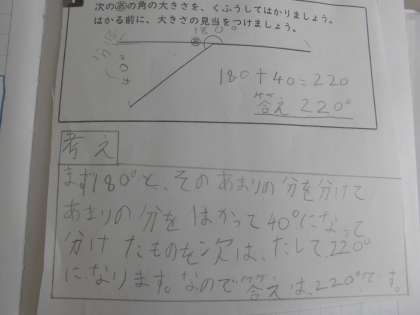 次のあの角の大きさを、くふうしてはかりましょう。
はかる前に、大きさの見当をつけましょう。
180°
あ
40°
180+40=220
答え 220°
考え
まず180°と、そのあまりの分を分けて
あまりの分をはかって40°になって
分けたものを次は、たして220°
になります。なので答えは、220°です。